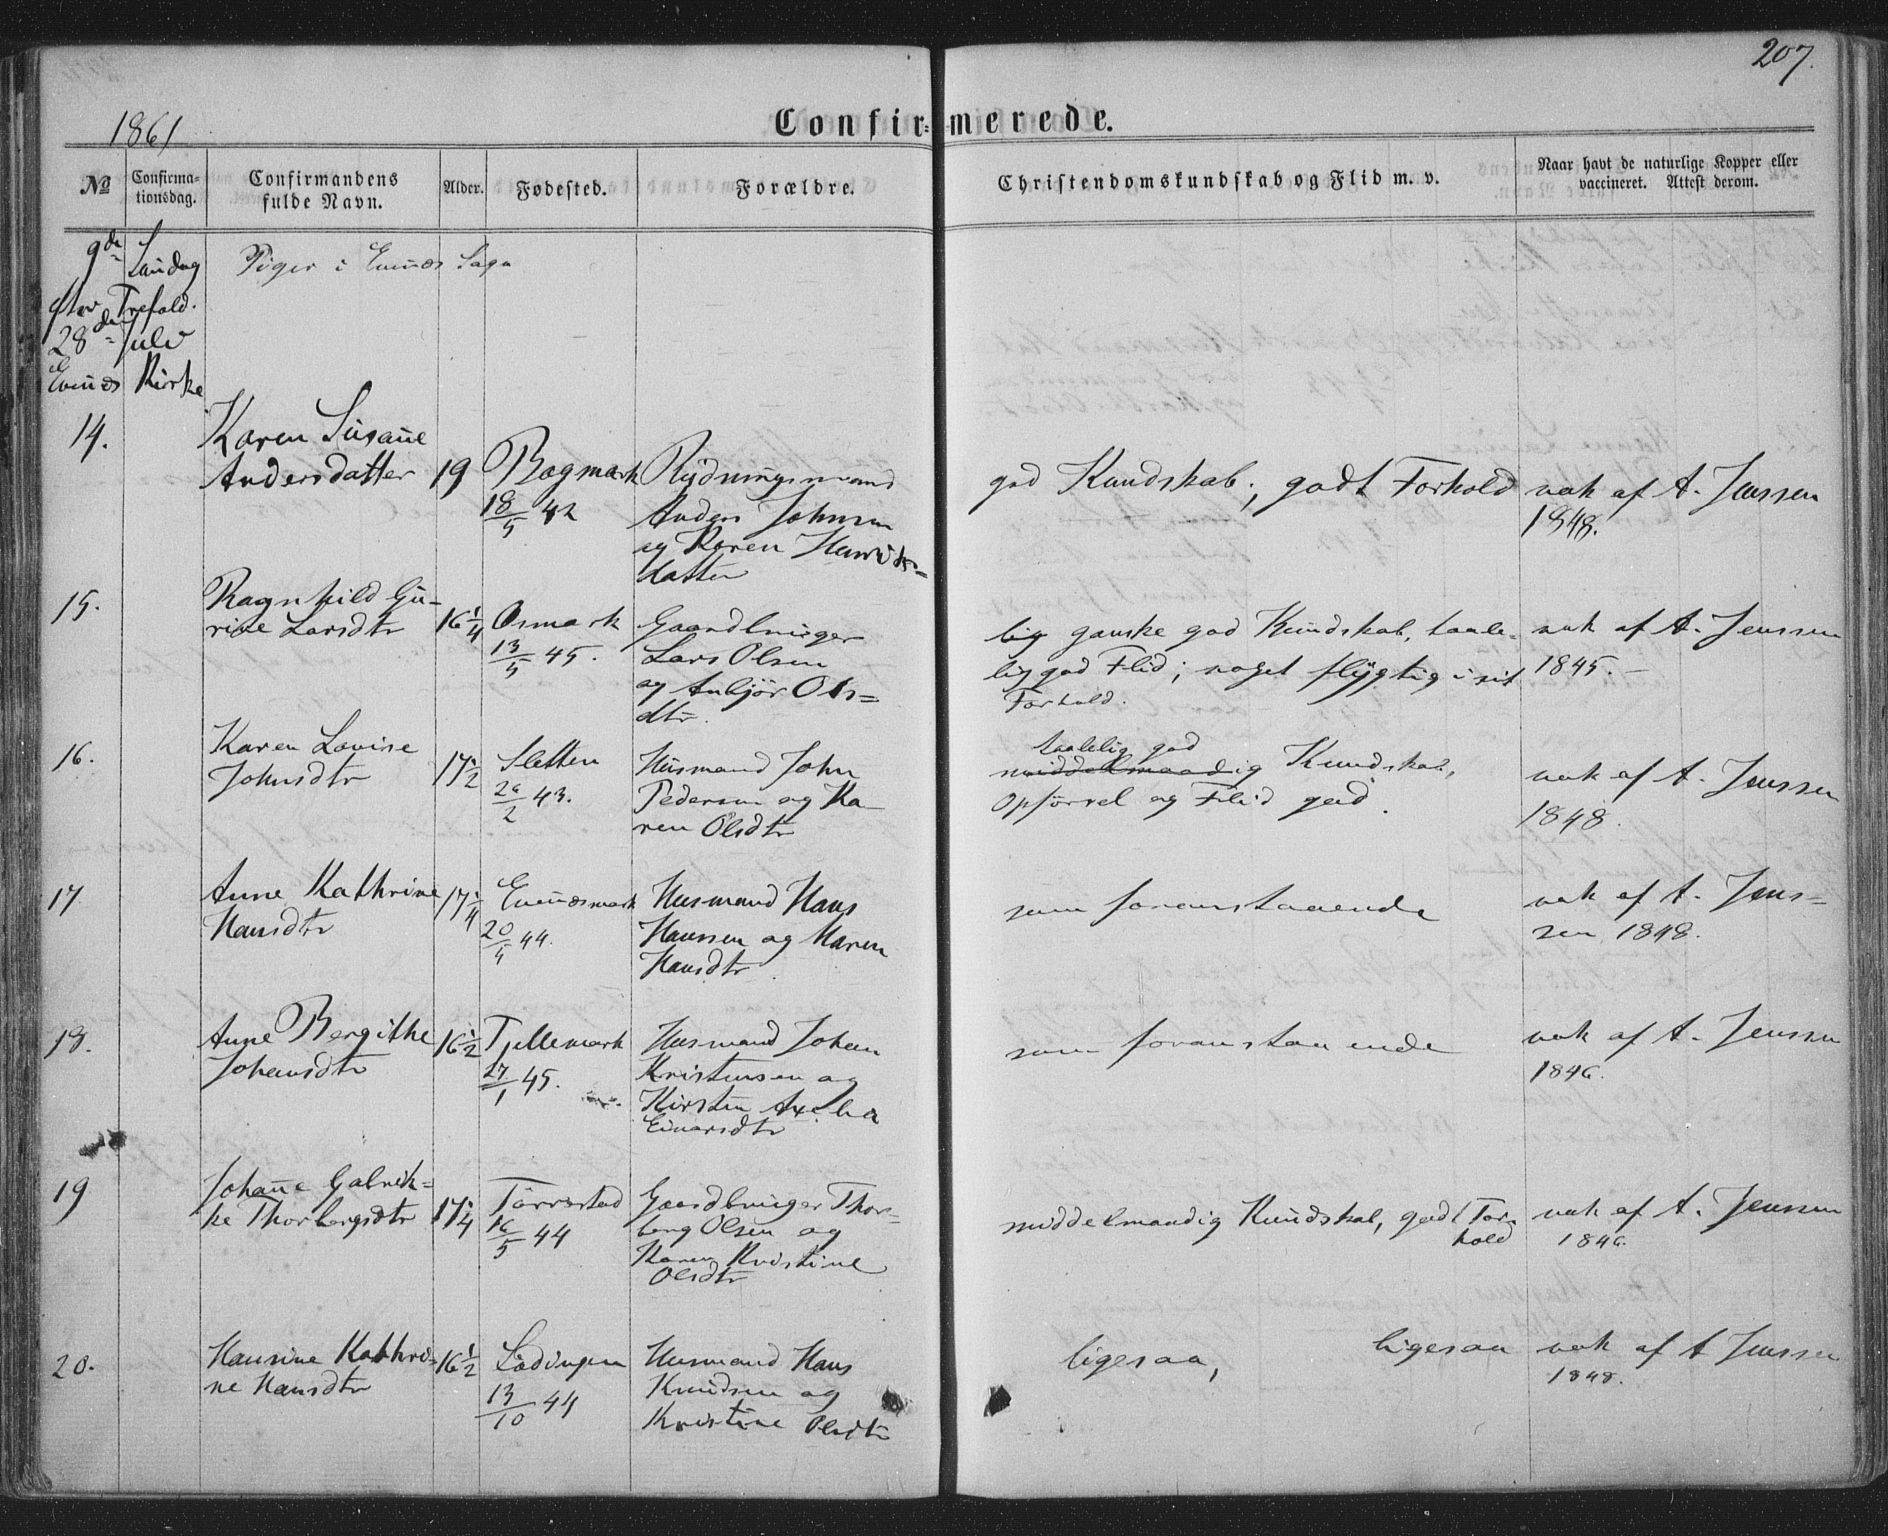 207.
1861
Confirmerede.
No
Confirma-
tionsdag.
Confirmandens
fulde Navn.
Alder.
Fødested.
Forældre.
Christendomskundskab og Flid m. v.
Naar havt de naturlige Kopper eller
vaccineret. Attest derom.
9de Søndag
efter Trefold.
28de Juli
Evenæs Kirke
Piger i Evenæs Sogn
14.
Karen Susanne
Andersdatter
19
Bogmark
18/5 42
Rydningsmand
Anders Johnsen
og Karen Henriks=
datter
god Kundskab, godt Forhold
vak af A. Jenssen
1848.
15.
Ragnhild Gu-
rine Larsdtr
16 1/4
Osmark
13/5 45.
Gaardbruger
Lars Olsen
og Anbjør Ols=
dtr.
ganske god Kundskab, taale-
lig god Flid; noget flygtig i sit
Forhold.
vak af A. Jenssen
1845.-
16.
Karen Lovise
Johnsdtr
17 1/2
Sletten
2/2 43.
Husmand John
Pedersen og Ka-
ren Olsdtr
taalelig god
middelmaadig Kundskab,
Opførsel og Flid god.
vak af A. Jenssen
1848.
17
Anne Kathrine
Hansdtr
17 1/4
Evenæsmark
20/4 44.
Husmand Hans
Hanssen og Maren
Hansdtr.
som foranstaaende
vak af A. Jens=
sen 1848.
18.
Anne Bergithe
Johansdtr
16 1/2
Tjellemark
27/1 45.
Husmand Johan
Kristensen og
Kirsten
Einarsdtr
som foranstaaende
vak af A. Jenssen
1846.
19
Johanne Gabrik=
ke Thorbergsdtr
17 1/4
Tørrestad
16/5 44
Gaardbruger Thor-
berg Olsen og
Karen Kristine
Olsdtr
middelmaadig Kundskab, godt For-
hold
vak af A. Jenssen
1846.
20.
Hansine Kathri-
ne Hansdtr
16 1/2
Lødingen
13/10 44
Husmand Hans
Knudsen og
Kristine Olsdtr
ligesaa, ligesaa
vak af A Jenssen
1848.